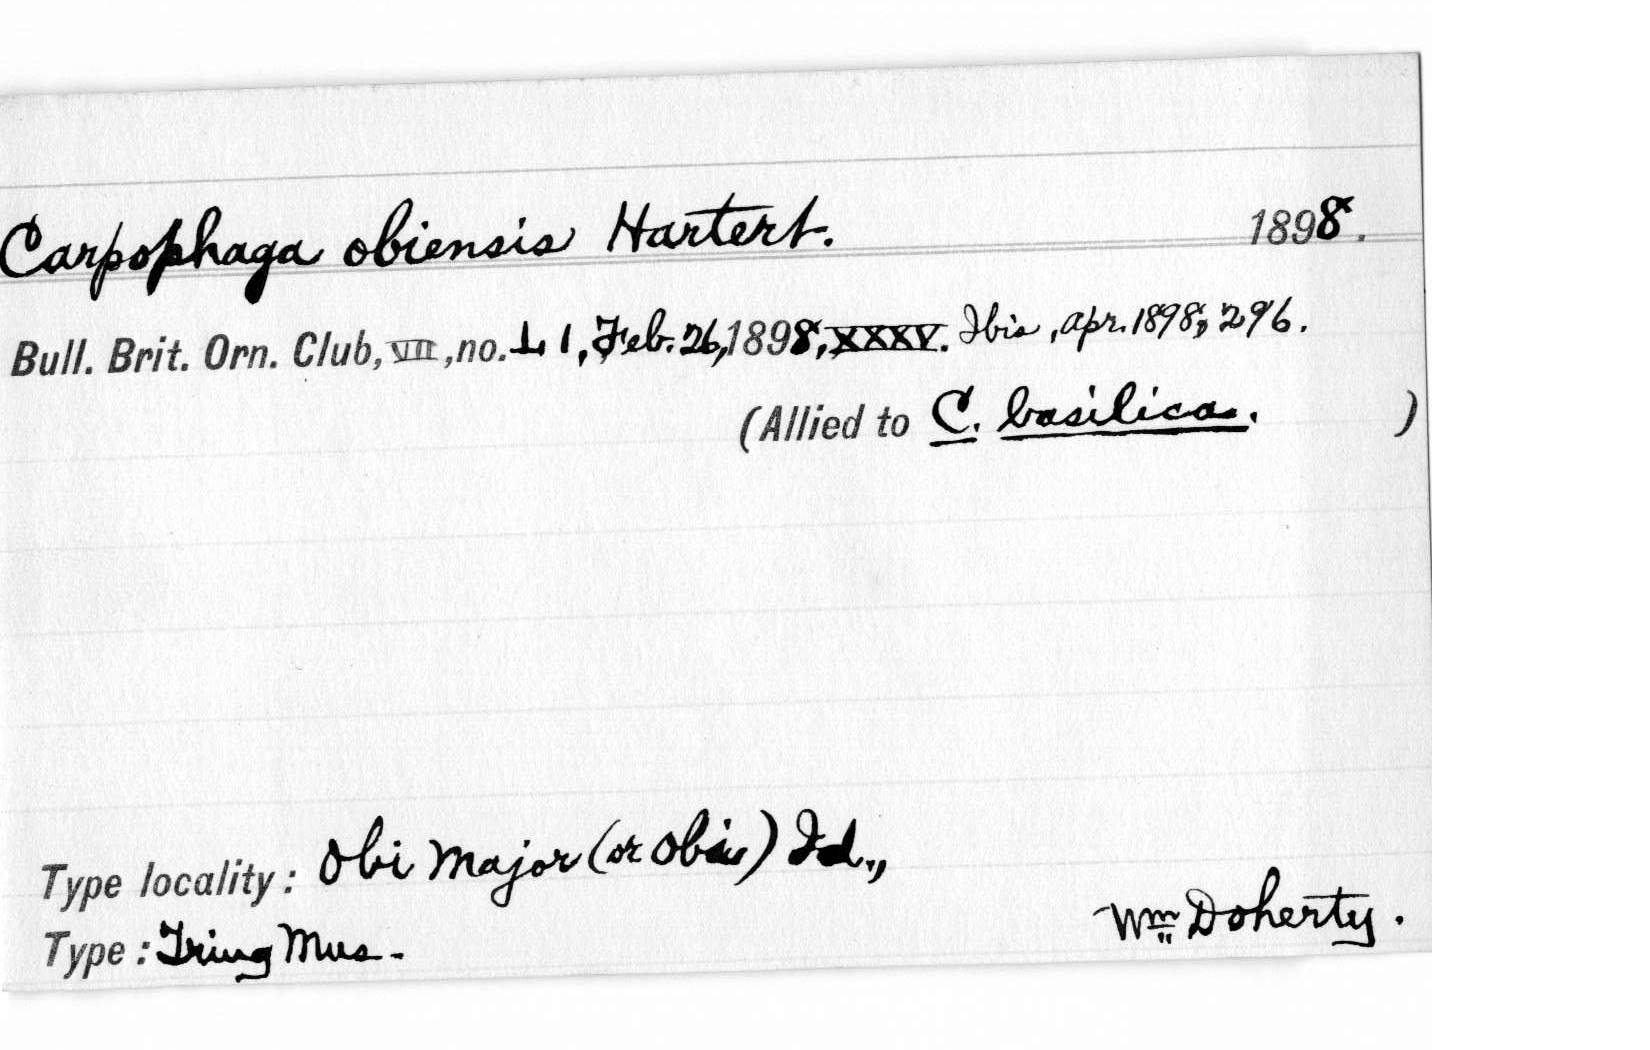 Carpophaga obiensis Hartert. 1898.
Bull. Brit. Orn. Club, VII, no. L 1, Feb. 26, 1898, XXXV. Ibis, Apr. 1898, 296.
(Allied to C. basilica. )
Type locality: Obi Major (or Obia) Id.,
Wm. Doherty.
Type: Tring Mus.